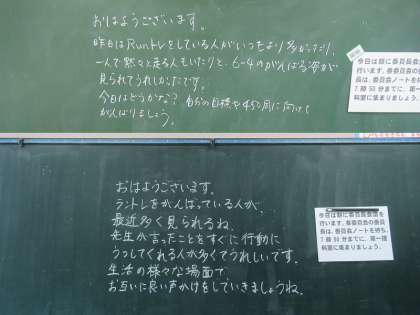 おはようございます。
昨日はRunトレをしている人がいつもより多かったり、
一人で黙々と走る人もいたりと、6-4のがんばる姿が
見られてうれしかったです。
今日はどうかな？自分の目標や
がんばりましょう。
今日は朝に委員長会
行います。各委員会の委員
長は、委員会ノートを持ち、
7時50分までに、第一
科室に集まりましょう。
おはようございます。
ラントレをがんばっている人が、
最近多く見られるね。
先生が言ったことをすぐに行動に
うつしてくれる人が多くてうれしいです。
生活の様々な場面で
お互いに良い声かけをしていきましょうね。
行います。各委員会の委員
長は、委員会ノートを持ち、
7時50分までに、第一理
科室に集まりましょう。